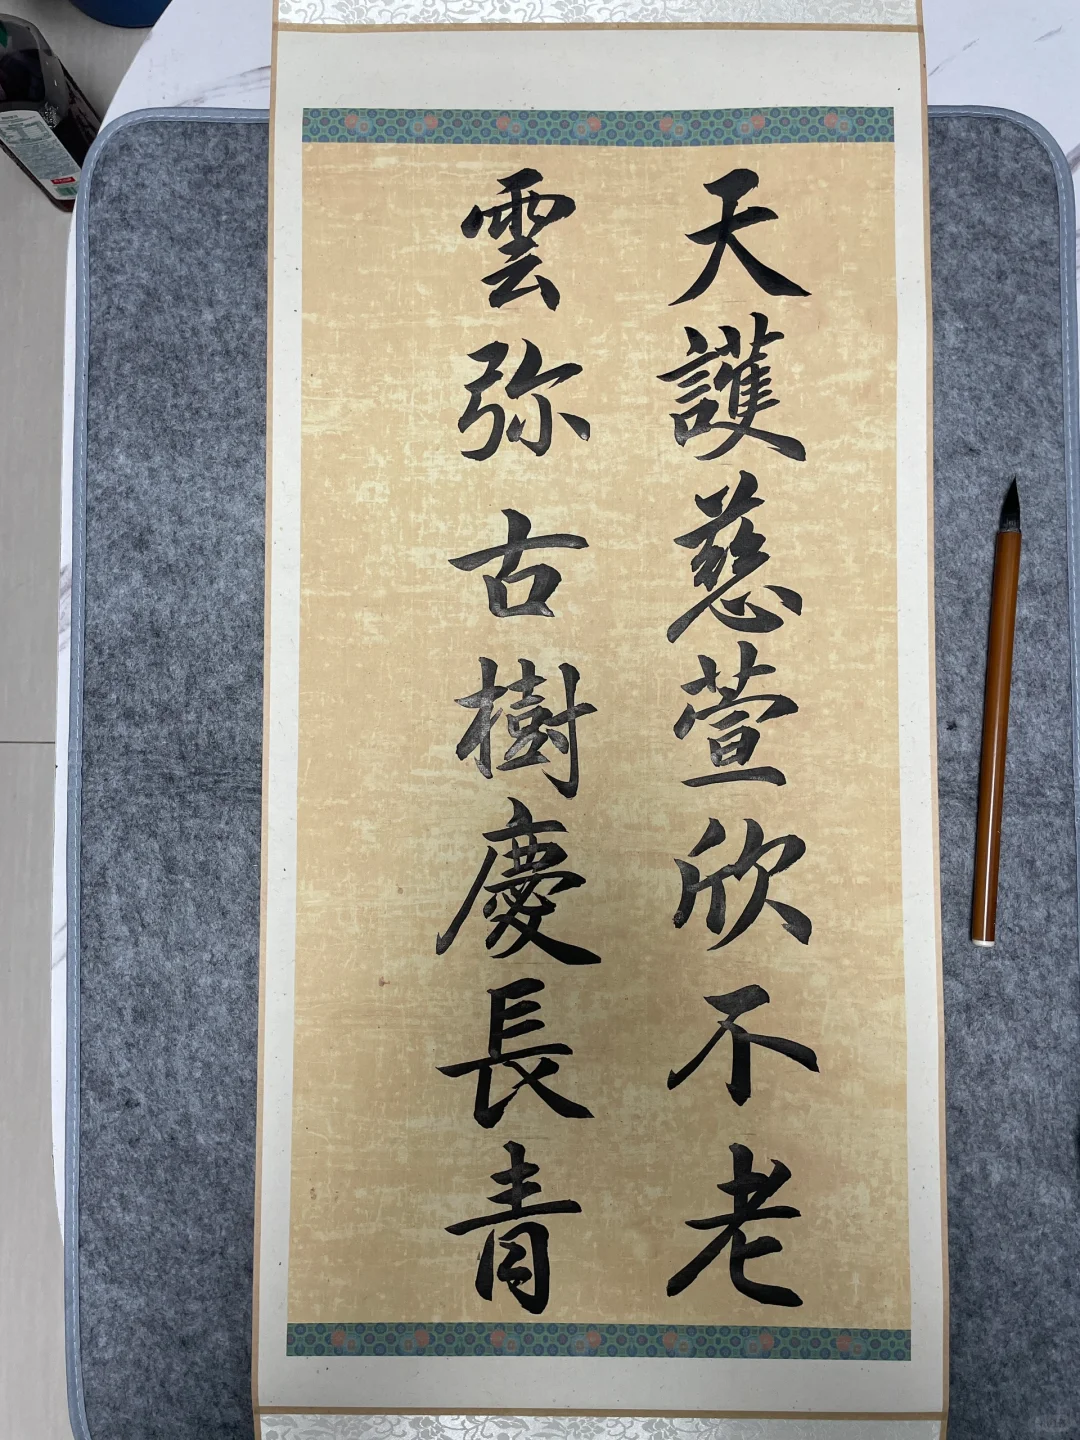 天護慈萱欣不老
雲弥古樹慶長青